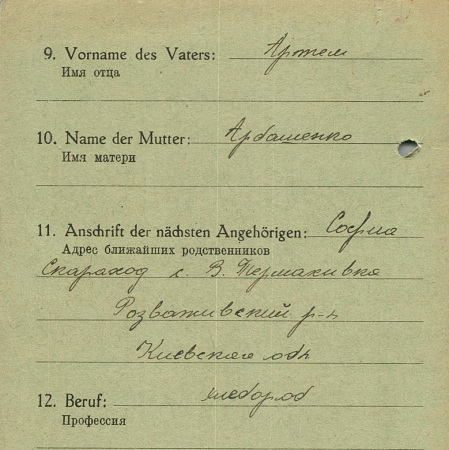 9. Vorname des Vaters: Артем
Имя отца
10. Name der Mutter: Арбашенко
Имя матери
11. Anschrift der nächsten Angehörigen: Софиа
Адрес ближайших родственников
Скараход с. В. Термахивка
Розваживский р-н
Киевская обл
12. Beruf: хлебороб
Профессия